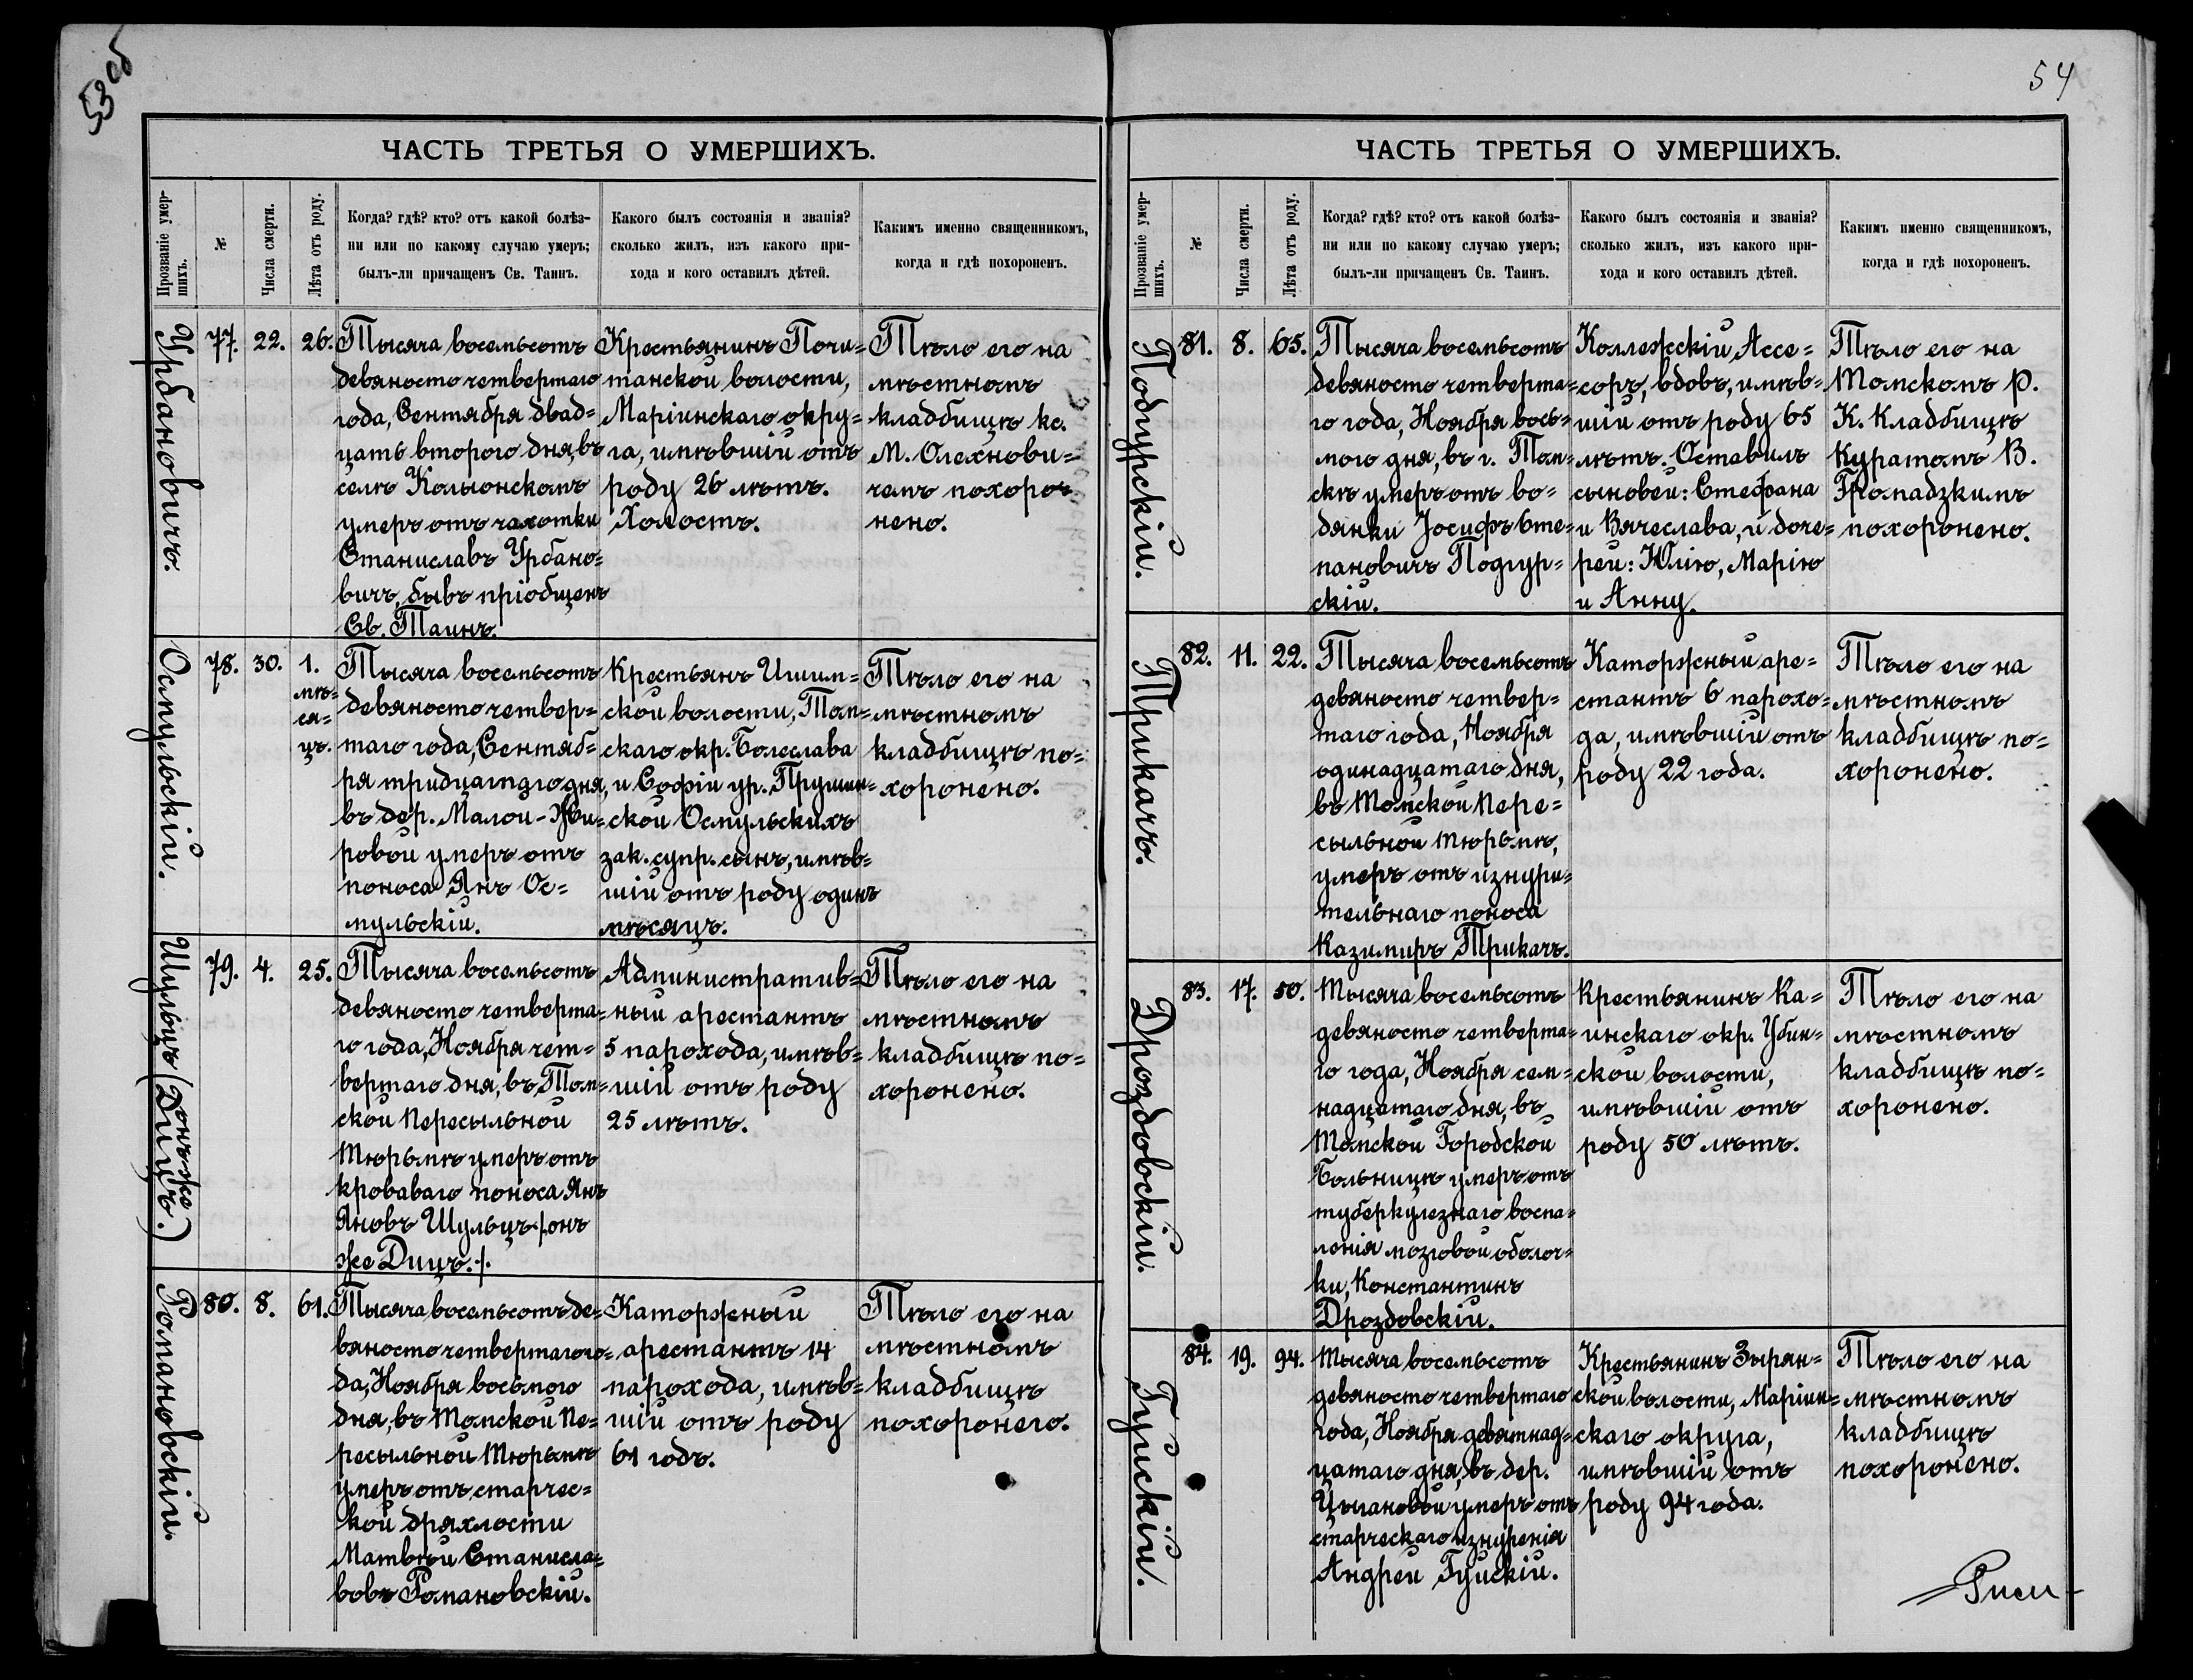 53 об
ЧАСТЬ ТРЕТЬЯ О УМЕРШИХЪ.
Прозваніе умер-
шихъ.
№
Числа смерти.
Лѣта отъ роду.
Когда? гдѣ? кто? отъ какой болѣз-
ни или по какому случаю умеръ;
былъ-ли причащенъ Св. Таинъ.
Какого былъ состоянія и званія?
сколько жилъ, изъ какого при-
хода и кого оставилъ дѣтей.
Какимъ именно священникомъ,
когда и гдѣ похороненъ.
Урбановичъ.
77.
22.
26.
Тысяча восемьсотъ
девяносто четвертаго
года, Сентября двад=
цать второго дня, въ
селѣ Колыонскомъ
умеръ отъ чахотки
Станиславъ Урбано=
вичъ, бывъ пріобщенъ
Св. Таинъ.
Крестьянинъ Почи=
танской волости,
Маріинскаго окру=
га, имѣвшій отъ
роду 26 лѣтъ.
Холостъ.
Тѣло его на
мѣстномъ
кладбищѣ кс.
М. Олехнови=
чемъ похоро=
нено.
Осмульскій.
78.
30.
1.
мѣ=
ся=
цъ.
Тысяча восемьсотъ
девяносто четвер=
таго года, Сентяб=
ря тридцатаго дня,
въ дер. Малой-Жи=
ровой умеръ отъ
поноса Янъ Ос=
мульскій.
Крестьянъ Ишим=
ской волости, Том=
скаго окр. Болеслава
и Софіи ур. Прушин=
ской Осмульскихъ
зак. супр. сынъ, имѣв=
шій отъ роду одинъ
мѣсяцъ.
Тѣло его на
мѣстномъ
кладбищѣ по=
хоронено.
Шульцъ (онъ-же Дицъ.)
79.
4.
25.
Тысяча восемьсотъ
девяносто четверта=
го года, Ноября чет=
вертаго дня, въ Том=
ской Пересыльной
Тюрьмѣ умеръ отъ
кроваваго поноса Янъ
Яновъ Шульцъ /.онъ
же Дицъ./.
Административ=
ный арестантъ
5 парохода, имѣв=
шій отъ роду
25 лѣтъ.
Тѣло его на
мѣстномъ
кладбищѣ по=
хоронено.
Романовскій.
80.
8.
61.
Тысяча восемьсотъ де=
вяносто четвертаго го=
да, Ноября восьмого
дня, въ Томской Пе=
ресыльной Тюрьмѣ
умеръ отъ старчес=
кой дряхлости
Матвѣй Станисла=
вовъ Романовскій.
Каторжный
арестантъ 14
парохода, имѣв=
шій отъ роду
61 годъ.
Тѣло его на
мѣстномъ
кладбищѣ
похоронено.
54
ЧАСТЬ ТРЕТЬЯ О УМЕРШИХЪ.
Прозваніе умер-
шихъ.
№
Числа смерти.
Лѣта отъ роду.
Когда? гдѣ? кто? отъ какой болѣз-
ни или по какому случаю умеръ;
былъ-ли причащенъ Св. Таинъ.
Какого былъ состоянія и званія?
сколько жилъ, изъ какого при-
хода и кого оставилъ дѣтей.
Какимъ именно священникомъ,
когда и гдѣ похороненъ.
Подгурскій.
81.
8.
65.
Тысяча восемьсотъ
девяносто четверта=
го года, Ноября вось=
мого дня, въ г. Том=
скѣ умеръ отъ во=
дянки Іосифъ Сте=
пановичъ Подгур=
скій.
Коллежскій Ассе=
соръ, вдовъ, имѣв=
шій отъ роду 65
лѣтъ. Оставилъ
сыновей: Стефана
и Вячеслава, и доче=
рей: Юлію, Марію
и Анну.
Тѣло его на
Томскомъ Р.
К. Кладбищѣ
Куратомъ В.
Громадзкимъ
похоронено.
Трикачъ.
82.
11.
22.
Тысяча восемьсотъ
девяносто четвер=
таго года, Ноября
одинадцатаго дня,
въ Томской Пере=
сыльной Тюрьмѣ,
умеръ отъ изнури=
тельнаго поноса
Казимиръ Трикачъ.
Каторжный аре=
стантъ 6 парохо=
да, имѣвшій отъ
роду 22 года.
Тѣло его на
мѣстномъ
кладбищѣ по=
хоронено.
Дроздовскій.
83.
17.
50.
Тысяча восемьсотъ
девяносто четверта=
го года, Ноября сем=
надцатаго дня, въ
Томской Городской
Больницѣ умеръ отъ
туберкулезнаго воспа=
ленія мозговой оболоч=
ки, Константинъ
Дроздовскій.
Крестьянинъ Ка=
инскаго окр. Убин=
ской волости,
имѣвшій отъ
роду 50 лѣтъ.
Тѣло его на
мѣстномъ
кладбищѣ по=
хоронено.
Гуйскій.
84.
19.
94.
Тысяча восемьсотъ
девяносто четвертаго
года, Ноября девятнад=
цатаго дня, въ дер.
Цыгановой умеръ отъ
старческаго изнуренія
Андрей Гуйскій.
Крестьянинъ Зырян=
ской волости, Маріин=
скаго округа,
имѣвшій отъ
роду 94 года.
Тѣло его на
мѣстномъ
кладбищѣ
похоронено.